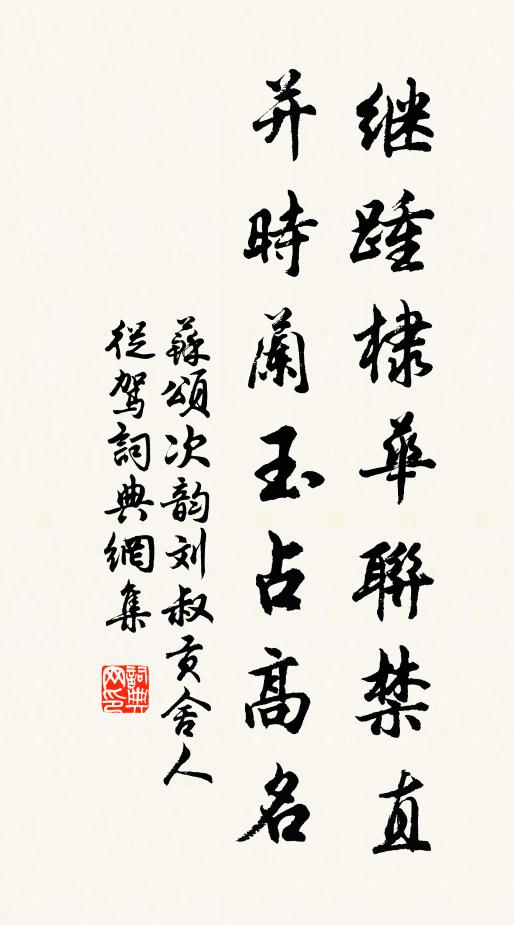 继踵棣华聯禁直
并時蘭玉占高名
蘇頌次韵刘叔贡舍人
從駕詞典網集
詞典网印